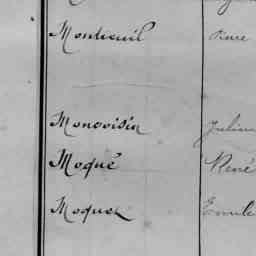 Montreuil Pierre
Monovisin Julien
Moqué René
Moquet Emile